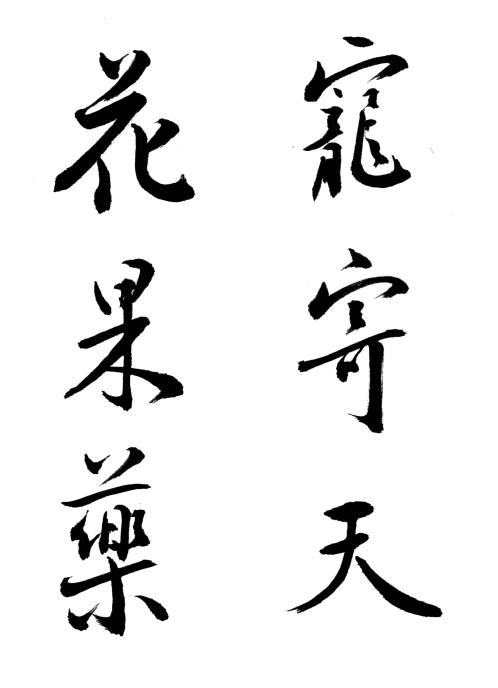 寵寄天
花果藥